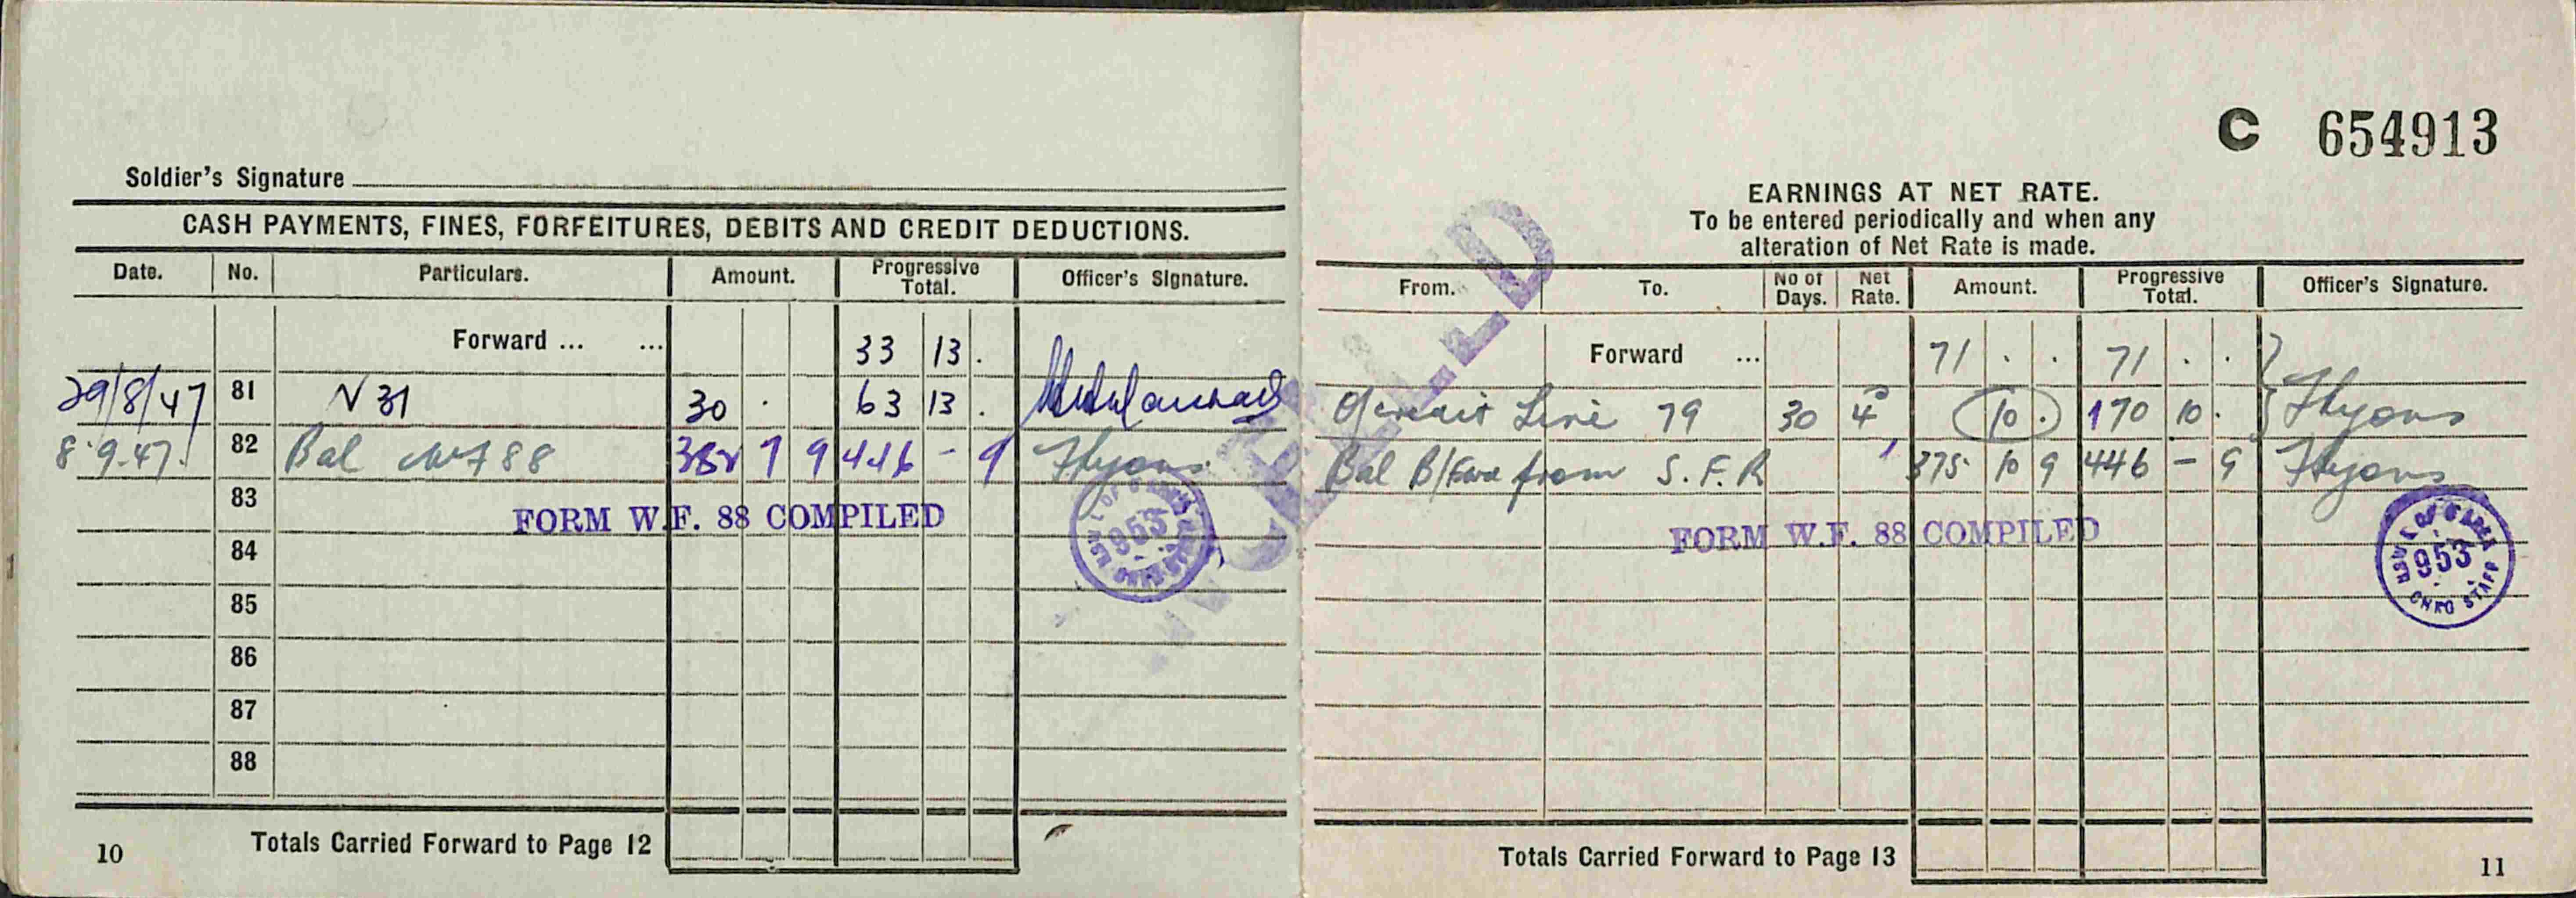 Soldier's Signature
CASH PAYMENTS, FINES, FORFEITURES, DEBITS AND CREDIT DEDUCTIONS.
Date. No. Particulars. Amount. Progressive Total. Officer's Signature.
Forward ... ... 33 13 .
29/8/47 81 N 31 30 . 63 13 .
8.9.47. 82 Bal 88 382 7 9 446 - 9 Flyons
83
FORM W.F. 88 COMPILED
953
84
85
86
87
88
Totals Carried Forward to Page 12
10
C 654913
EARNINGS AT NET RATE.
To be entered periodically and when any
alteration of Net Rate is made.
From. To. No of Days. Net Rate. Amount. Progressive Total. Officer's Signature.
Forward ... 71 . . 71 . .
credit Line 79 30 4D 10 . 170 10 . Flyons
Bal B/Fwd from S.F.R 375 10 9 446 - 9 Flyons
FORM W.F. 88 COMPILED
953
STAFF
Totals Carried Forward to Page 13
11